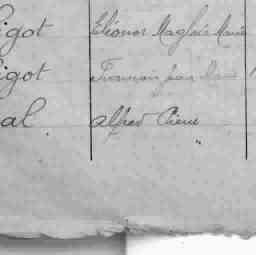 igot Eléonor Marie
igot François Jean Marie
al Alfred Pierre